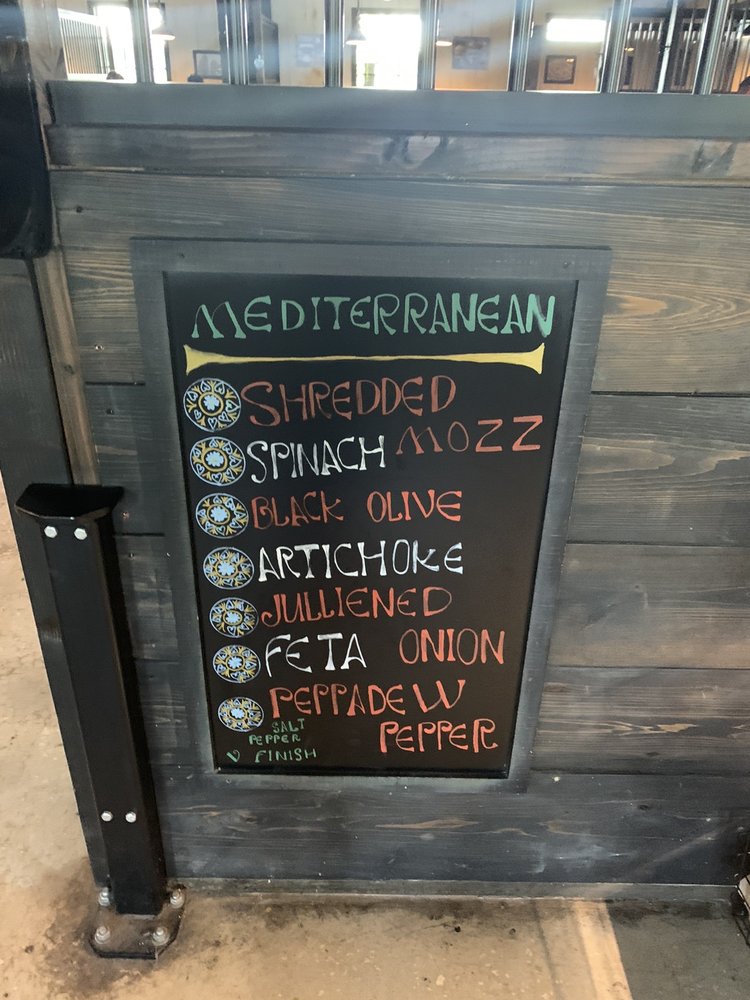 MEDITERRANEAN
SHREDDED
MOZZ
SPINACH
BLACK OLIVE
ARTICHOKE
JULLIENED
ONION
FETA
PEPPADEW
PEPPER
SALT
PEPPER
FINISH